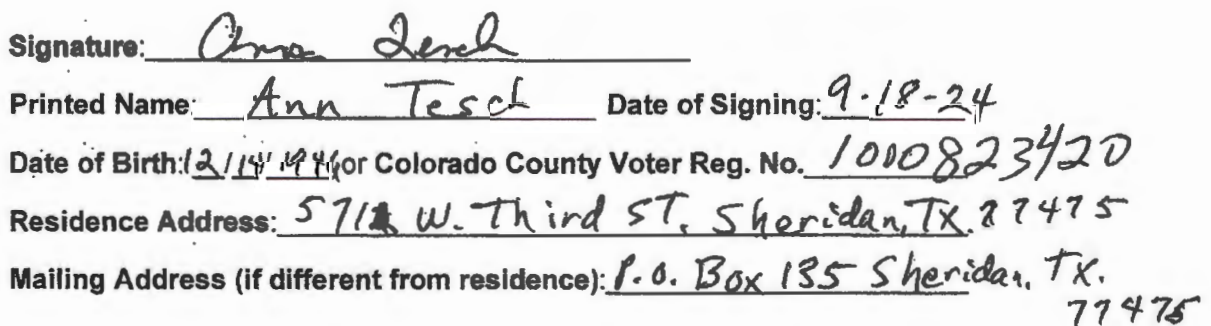 Signature: Ann Tesch
Printed Name: Ann Tesch Date of Signing: 9-18-24
Date of Birth: 12/14/1946 or Colorado County Voter Reg. No. 1000823420
Residence Address: 571 W. Third ST, Sheridan, TX. 77475
Mailing Address (if different from residence): P.O. Box 135 Sheridan, TX.
77475